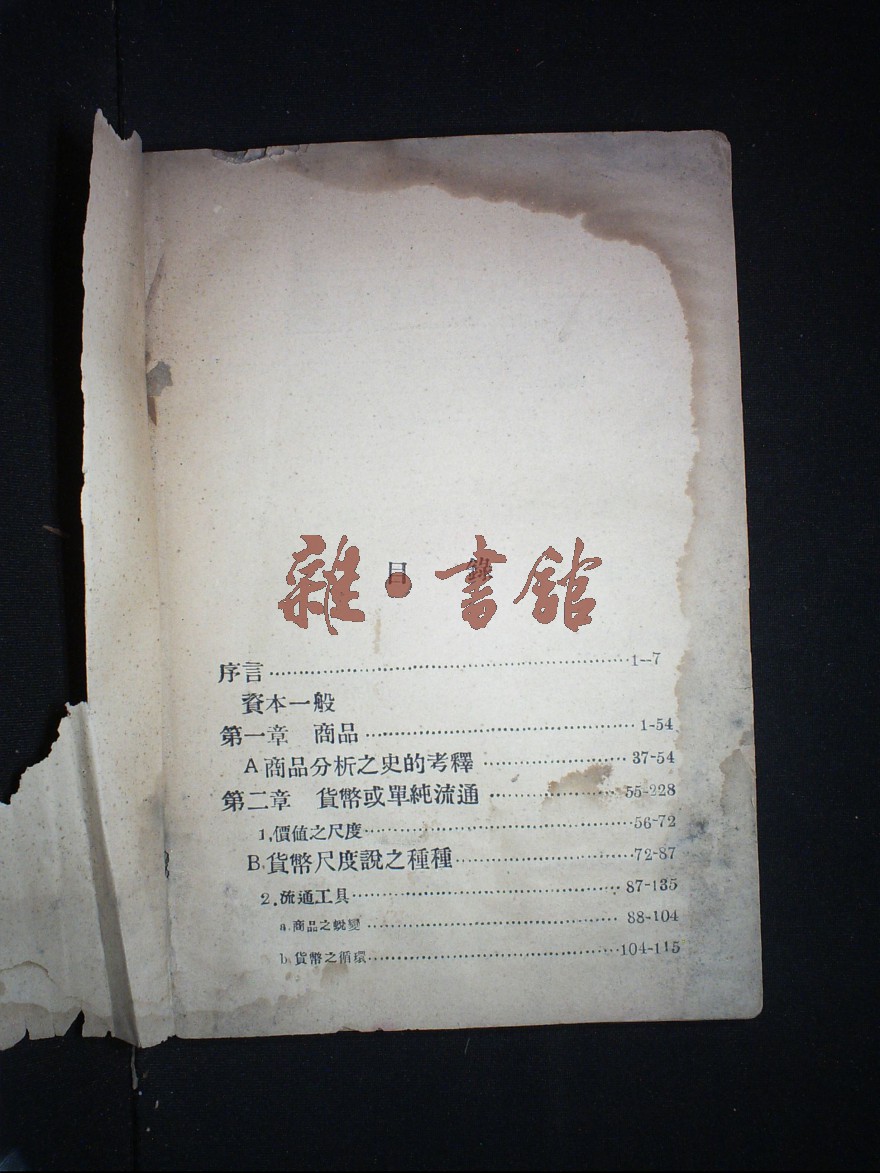 目錄
雜·書館
序言 1—7
資本一般
第一章 商品 1-54
A 商品分析之史的考釋 37-54
第二章 貨幣或單純流通 55-228
1,價值之尺度 56-72
B.貨幣尺度說之種種 72-87
2.流通工具 87-135
a.商品之蛻變 88-104
b.貨幣之循環 104-115